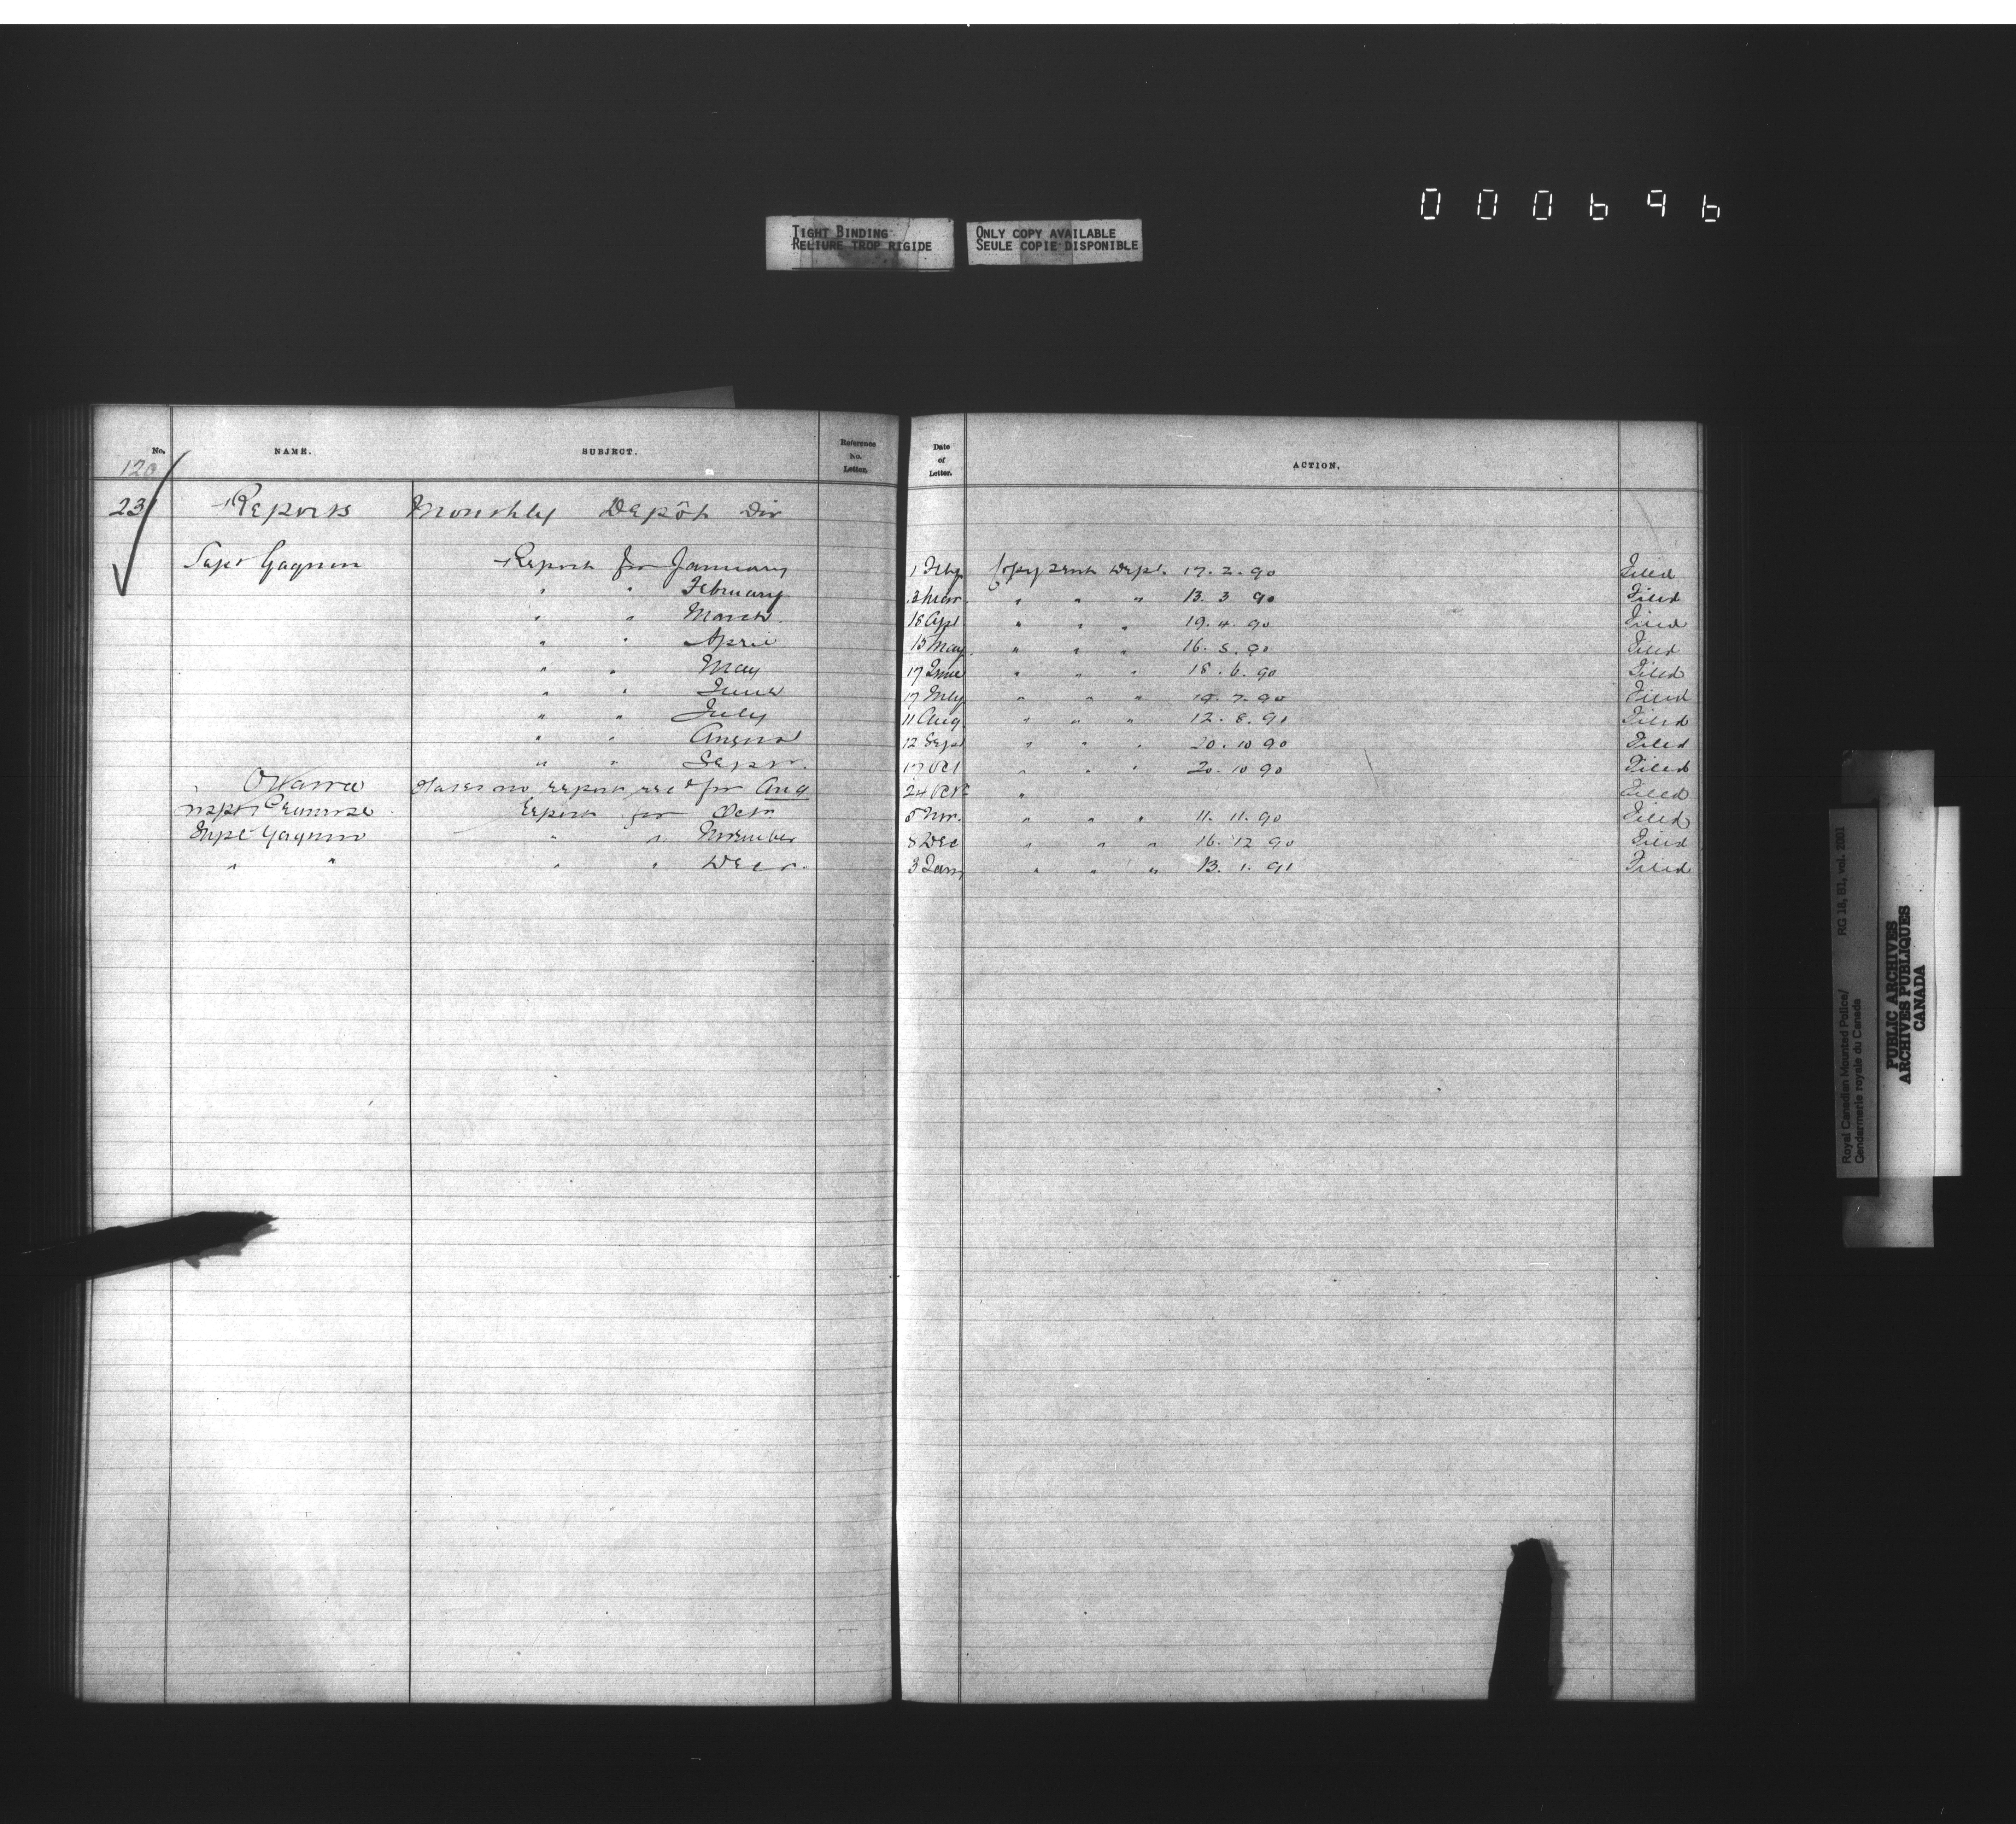 000696
TIGHT BINDING
RELIURE TROP RIGIDE
ONLY COPY AVAILABLE
SEULE COPIE DISPONIBLE
No. NAME. SUBJECT. Reference No. Letter. Date of Letter. ACTION.
120
23 Reports Monthly Depôt Div
Supt Gagnon Report for January 1 Feby Copy sent Dept. 17. 2. 90 Filed
" " February 3 Mar " " " 13. 3 90 Filed
" " March. 18 Apl " " " 19. 4. 90 Filed
" " April 15 May " " " 16. 5. 90 Filed
" " May 17 June " " " 18. 6. 90 Filed
" " June 17 July " " " 19. 7. 90 Filed
" " July 11 Aug " " " 12. 8. 90 Filed
" " August 12 Sept " " " 20. 10 90 Filed
" " Septr. 17 Oct " " " 20. 10 90 Filed
Ottawa States no report recd for Aug 24 Oct " Filed
Inspr Primrose Report for Octr 8 Nov. " " " 11. 11. 90 Filed
Supt Gagnon " " November 8 Dec " " " 16. 12 90 Filed
" " " " Decr. 3 Jany " " " 13. 1. 91 Filed
Royal Canadian Mounted Police/
Gendarmerie royale du Canada
RG 18, B1, vol. 2001
PUBLIC ARCHIVES
ARCHIVES PUBLIQUES
CANADA